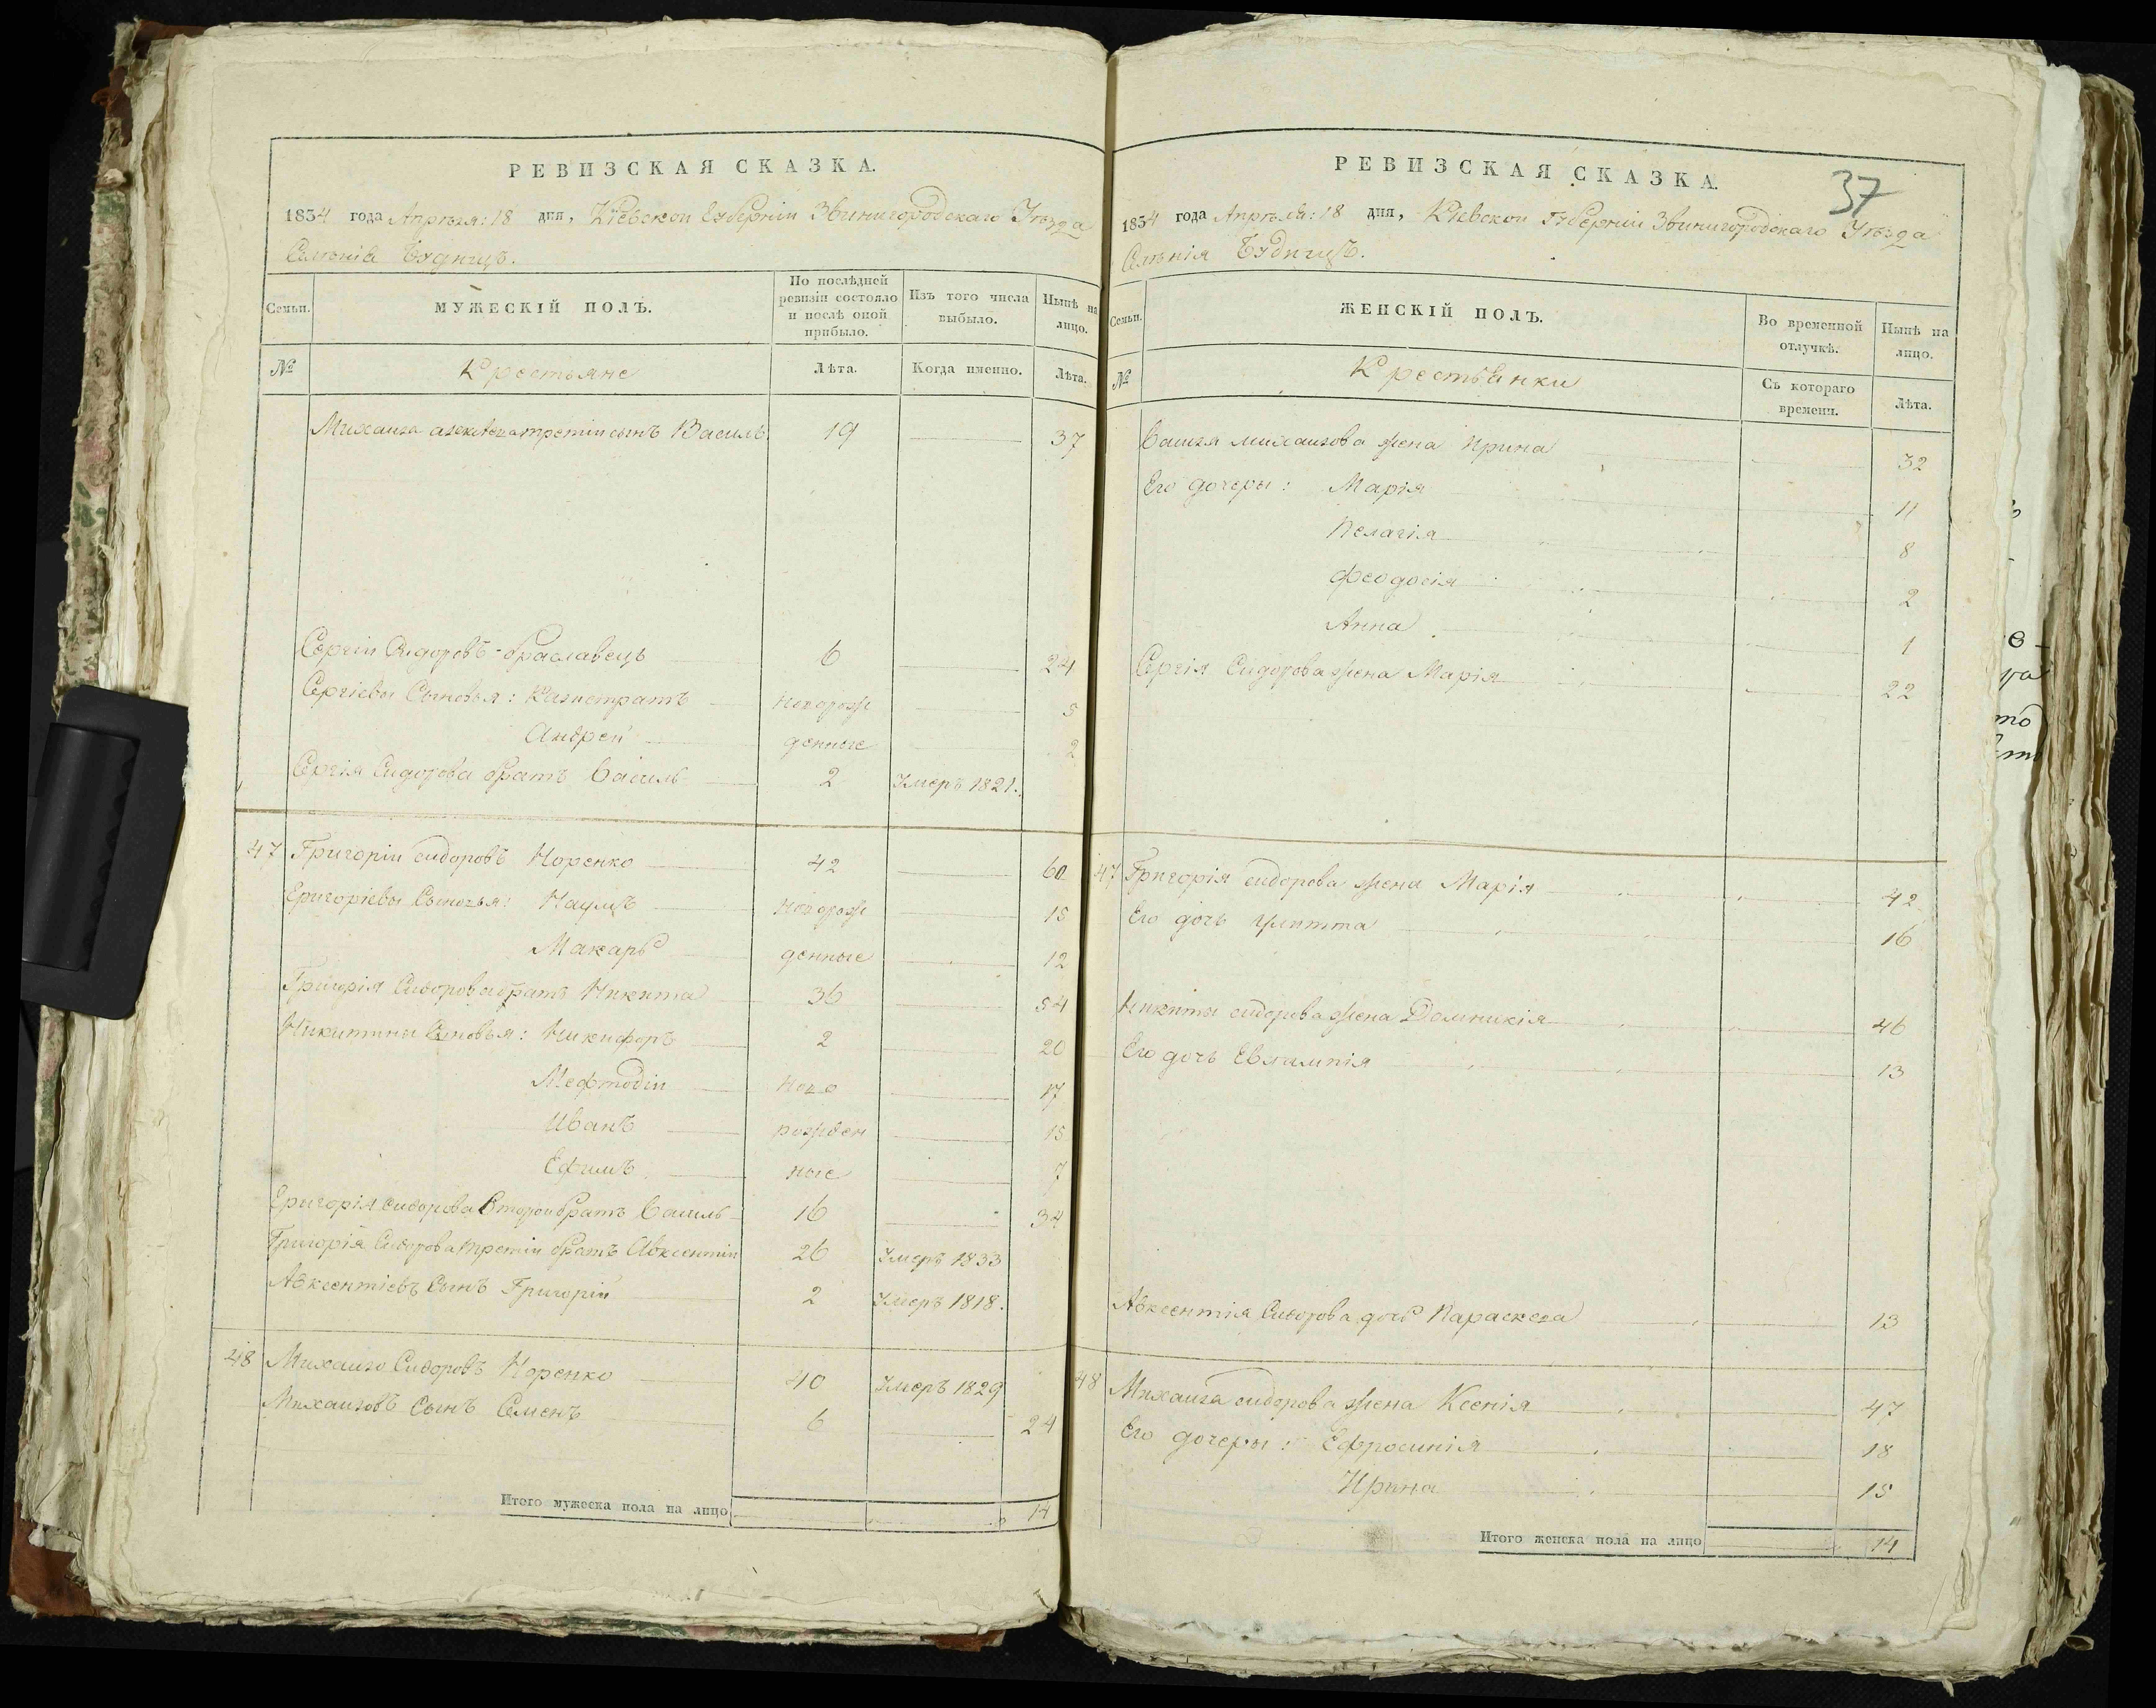 РЕВИЗСКАЯ СКАЗКА.
1834 года Апрѣля: 18 дня, Кіевской Губерніи Звинигородскаго Уѣзда
Селѣнія Будищъ.
Семьи. МУЖЕСКІЙ ПОЛЪ. По послѣдней ревизіи состояло и послѣ оной прибыло. Изъ того числа выбыло. Нынѣ на лицо.
№ Крестьяне Лѣта. Когда именно. Лѣта.
Михаила третіи сынъ Василь 19 37
Сергіи Сидоровъ Браславецъ 6 24
Сергіевы Сыновья: Калистратъ Новорож 5
Андрей денные 2
Сергія Сидорова братъ Василь 2 Умеръ 1821.
47 Григоріи сидоровъ Норенко 42 60
Григоріевы Сыновья: Наумъ Новорож 15
Макаръ денные 12
Григорія Сидорова братъ Никита 36 54
Никитины Сыновья: Никифоръ 2 20
Мефтодіи Ново 17
Иванъ рожден 15
Ефимъ ные 7
Григорія сидорова Второи братъ Василь 16 34
Григорія Сидорова третіи братъ Авксентіи 26 Умеръ 1833
Авксентіевъ Сынъ Григоріи 2 Умеръ 1818.
48 Михаило Сидоровъ Норенко 40 Умеръ 1829
Михаиловъ Сынъ Семенъ 6 24
Итого мужеска пола на лицо 14
РЕВИЗСКАЯ СКАЗКА.
37
1834 года Апрѣля: 18 дня, Кіевскои Губерніи Звинигородскаго Уѣзда
Селѣнія Будищъ.
Семьи. ЖЕНСКІЙ ПОЛЪ. Во временной отлучкѣ. Нынѣ на лицо.
№ Крестьянки Съ котораго времени. Лѣта.
Василя михаилова жена Ирина 32
Его дочеры: Марія 11
Пелагія 8
Феодосія 2
Анна 1
Сергія Сидорова жена Марія 22
47 Григорія сидорова жена Марія 42
Его дочь 16
Никиты сидорова жена Домникія 46
Его дочь Евлампія 13
Авксентія Сидорова дочь Параскева 13
48 Михаила сидорова жена Ксенія 47
Его дочеры: Ефросинія 18
Ирина 15
Итого женска пола на лицо 14